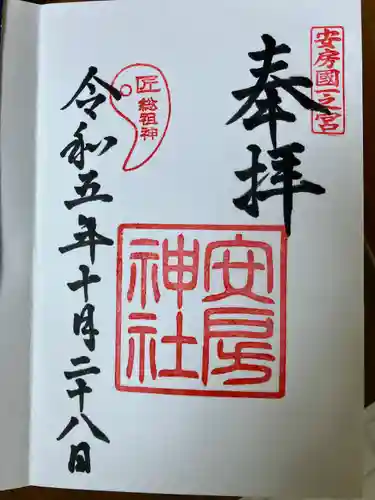 安房國一之宮
奉拝
安房
神社
匠
総祖神
令和五年十月二十八日